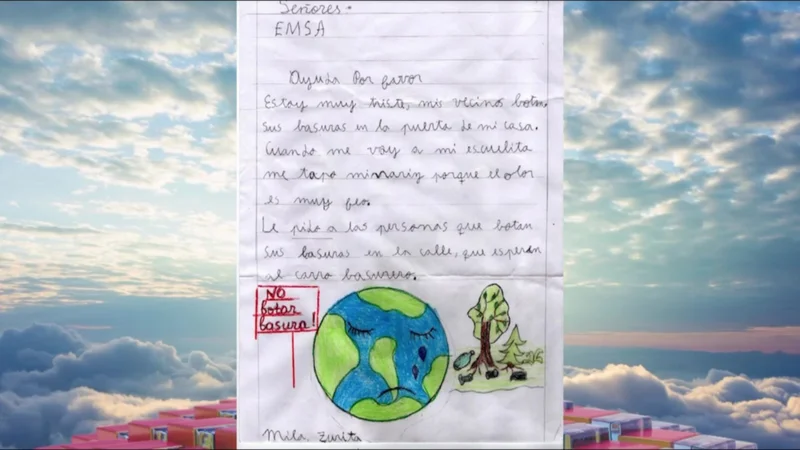 Señores.
EMSA
Ayuda Por favor
Estoy muy triste, mis vecinos botan
sus basuras en la puerta de mi casa.
Cuando me voy a mi escuelita
me tapo mi nariz porque el olor
es muy feo.
Le pido a las personas que botan
sus basuras en la calle, que esperen
al carro basurero.
NO
botar
basura!
Mila Zurita